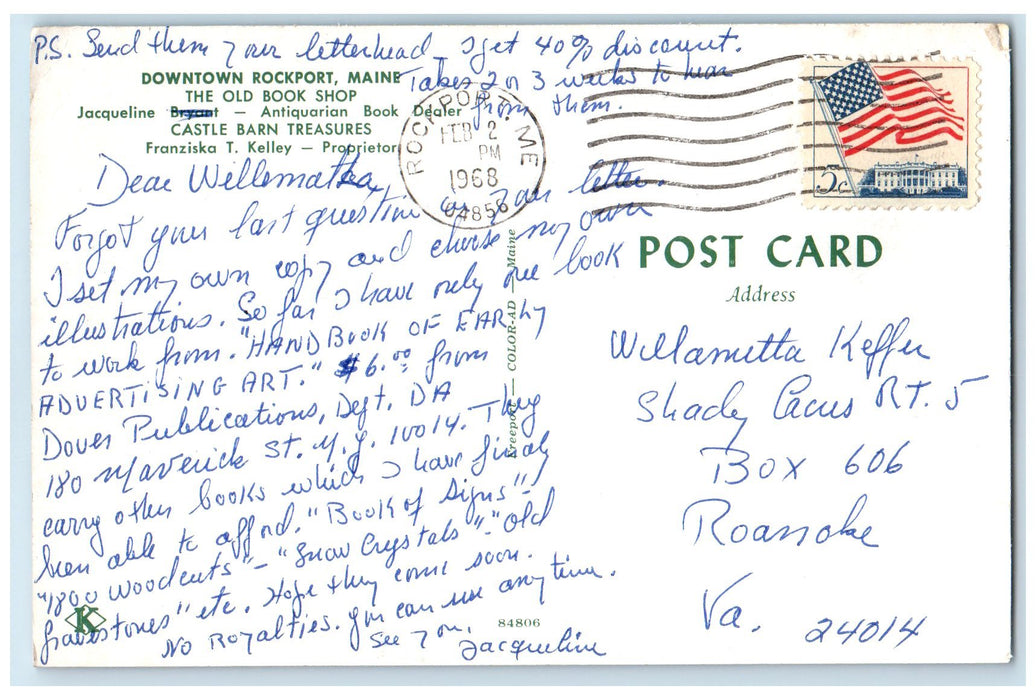 P.S. Send them your letterhead I get 40% discount.
Takes 2 or 3 weeks to hear
from them.
DOWNTOWN ROCKPORT, MAINE
THE OLD BOOK SHOP
Jacqueline Bryant — Antiquarian Book Dealer
CASTLE BARN TREASURES
Franziska T. Kelley — Proprietor
ROCKPORT, ME
FEB 2
PM
1968
04856
5c
Dear Willametta,
Forgot your last question in your letter.
I set my own copy and choose my own
illustrations. So far I have only one book
to work from. "HANDBOOK OF EARLY
ADVERTISING ART." $6.00 from
Dover Publications, Dept. DA
180 Maverick St. N.Y. 10014. They
carry other books which I have finally
been able to afford. "Book of Signs" -
"1800 Woodcuts" - "Snow Crystals" - "Old
Gravestones" etc. Hope they come soon.
No Royalties. You can use any time.
See you,
Jacqueline
K
84806
Freeport — COLOR-AD — Maine
POST CARD
Address
Willametta Keffer
Shady Acres RT. 5
Box 606
Roanoke
Va. 24014